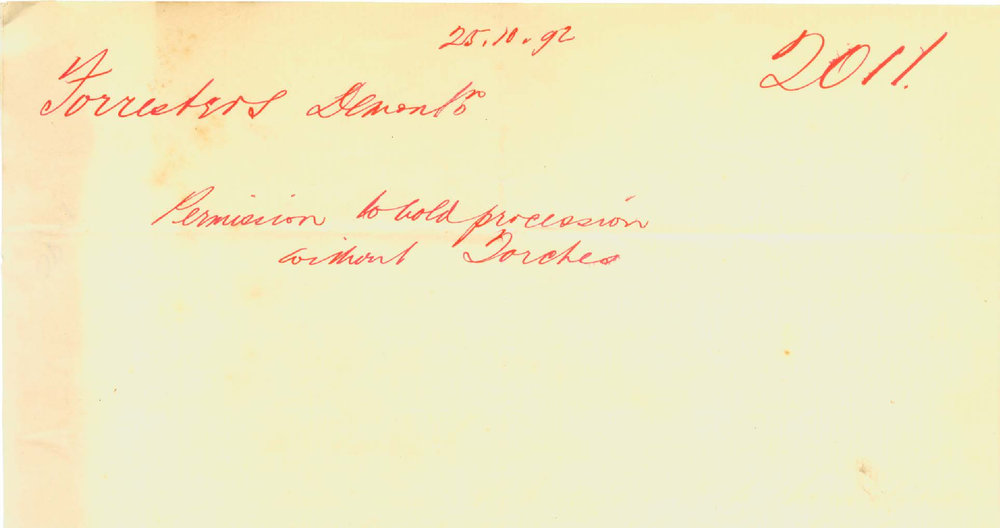 25.10.92
2011.
Forresters Demontn
Permission to hold procession
without Torches